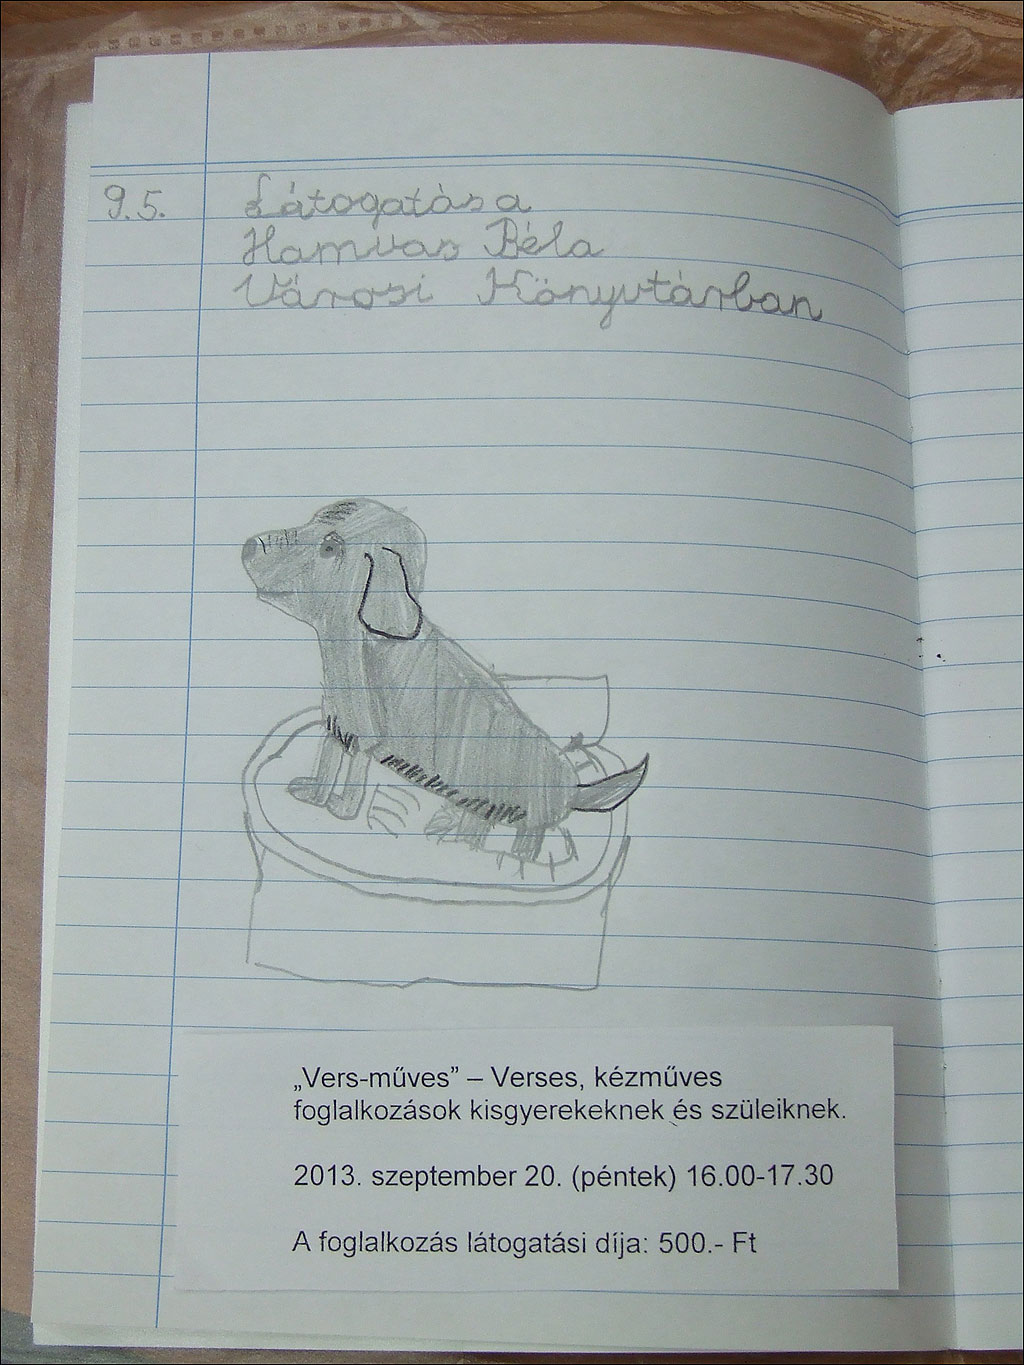 9.5. Látogatás a
Hamvas Béla
Városi Könyvtárban
„Vers-műves” – Verses, kézműves
foglalkozások kisgyerekeknek és szüleiknek.
2013. szeptember 20. (péntek) 16.00-17.30
A foglalkozás látogatási díja: 500.- Ft